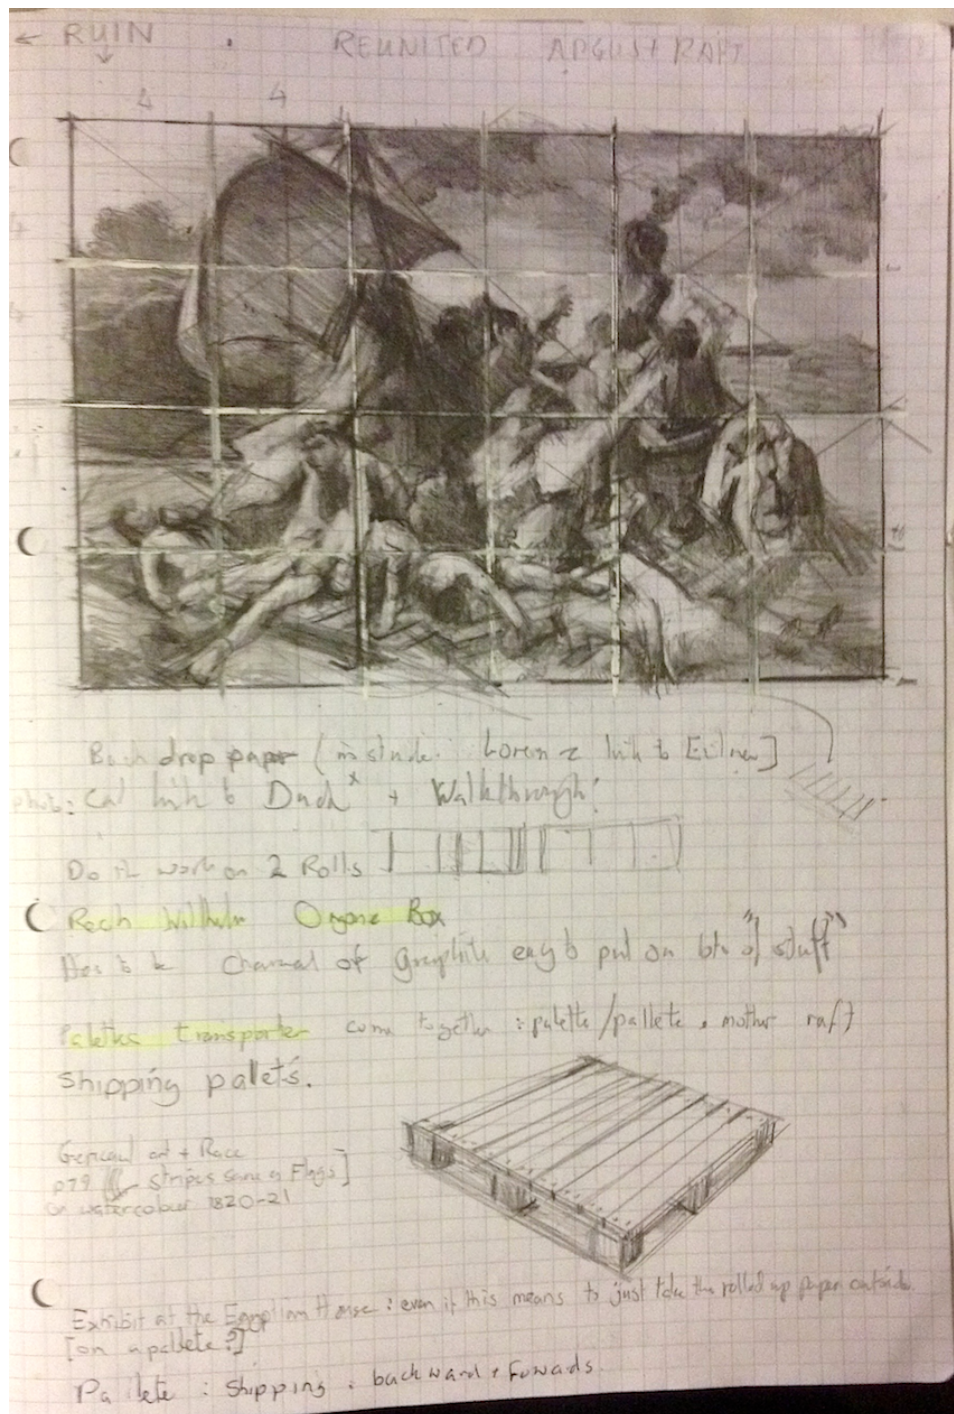 ← RUIN . REUNITED
4 4
Back drop paper (in studio: Lorenz link to
photo: link to + Walkthrough!
Do the work on 2 Rolls
Rech Wilhelm Orgone Box
Has to be Charcoal of Graphite easy to put on lots of "stuff"
Palettes transporter come together : palette/pallete . mother raft
Shipping palets.
Gericault art + Race
p79 stripes same as Flags]
on watercolour 1820-21
Exhibit at the Egyptian House : even if this means to just take the rolled up paper outside.
[on a pallete?]
Pallete : Shipping : backward + Fowads.